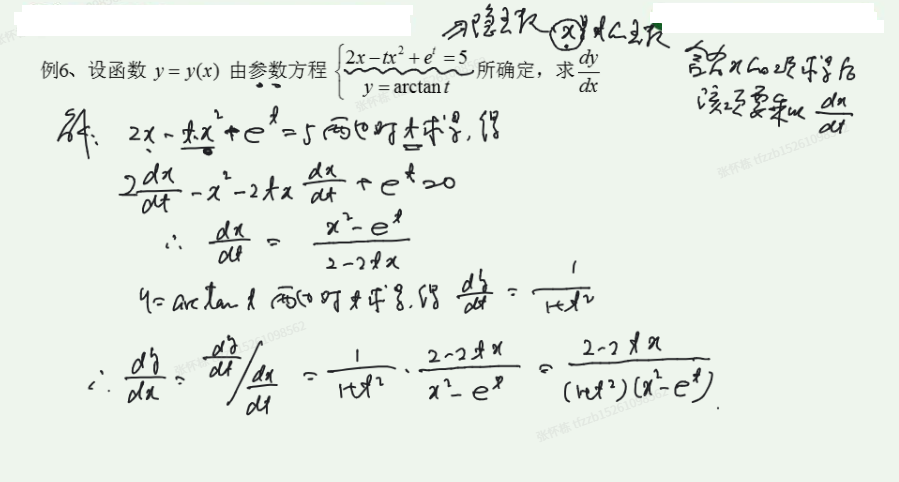 ⇒隐函数 x是t的函数
例6、设函数 y = y(x) 由参数方程 { 2x − tx² + eᵗ = 5 , y = arctan t 所确定，求 dy/dx
含x的项求导后
该项要乘以 dx/dt
解: 2x − tx² + eᵗ = 5 两边对t求导, 得
2 dx/dt − x² − 2tx dx/dt + eᵗ = 0
∴ dx/dt = (x² − eᵗ)/(2 − 2tx)
y = arctan t 两边对t求导, 得 dy/dt = 1/(1+t²)
∴ dy/dx = dy/dt / dx/dt = 1/(1+t²) · (2 − 2tx)/(x² − eᵗ) = (2 − 2tx)/((1+t²)(x² − eᵗ)).
张怀栋 tfzzb15261098562